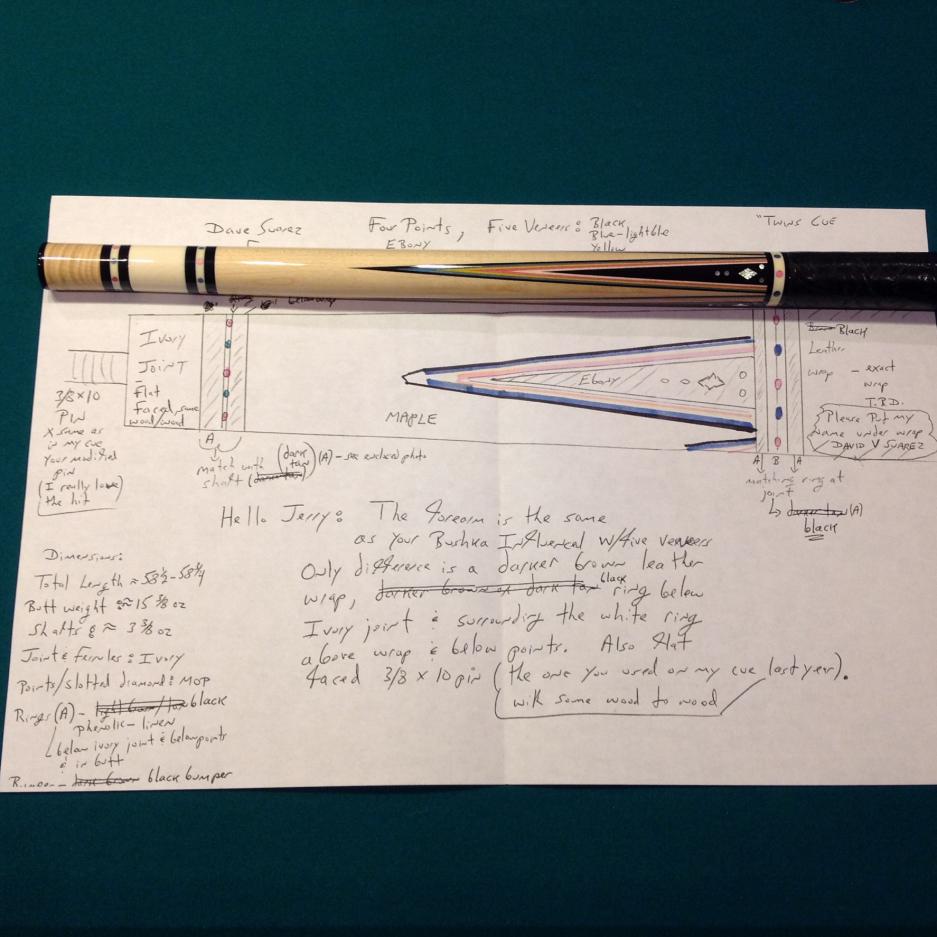 Dave Suarez Four Points, Five Veneers: Black "TWINS CUE
EBONY Blue-light blue
Yellow
Ivory
JOINT
Flat
Faced, some
wood/wood
3/8 x 10
PIN
x same as
in my cue
Your modified
pin
(I really love
the hit)
A
match with
shaft
(dark
tan)
(A) - see enclosed photo
MAPLE
Ebony
Black
Leather
wrap - exact
wrap
T.B.D.
Please Put my
name under wrap
DAVID V SUAREZ
A B A
matching ring at
joint
(A)
black
Hello Jerry: The Forearm is the same
as your Bushka Influenced w/five veneers
Only difference is a darker brown leather
wrap, darker brown or dark tan black ring below
Ivory joint & surrounding the white ring
above wrap & below points. Also flat
faced 3/8 x 10 pin (the one you used on my cue last year).
with some wood to wood
Dimensions:
Total Length ≈ 58 1/2 - 58 3/4
Butt weight ≈ 15 3/8 oz
Shafts ≈ 3 3/8 oz
Joint & Ferrules: Ivory
Points/slotted diamond: MOP
Rings (A) - black
phenolic-linen
below ivory joint & below points
& in butt
black bumper